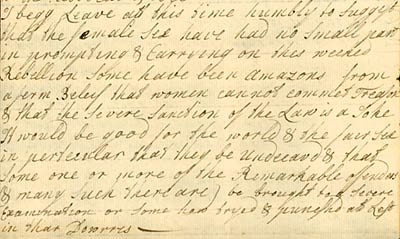 I begg Leave at this time humbly to Suggest
that the female Sex have had no Small part
in prompting & Carrying on this weeked
Rebellion Some have been Amazons from
a ferm Beleif that women cannot commet Treason
& that the Severe Sanction of the Law is a Joke
It would be good for the world & the fair Sex
in perteculer that they be Undeceavd & that
Some one or more of the Remarkable ofendars
& many Such there are) be brought to a Severe
Examination or Some had tryed & puneshed at Left
in thar Dowrres